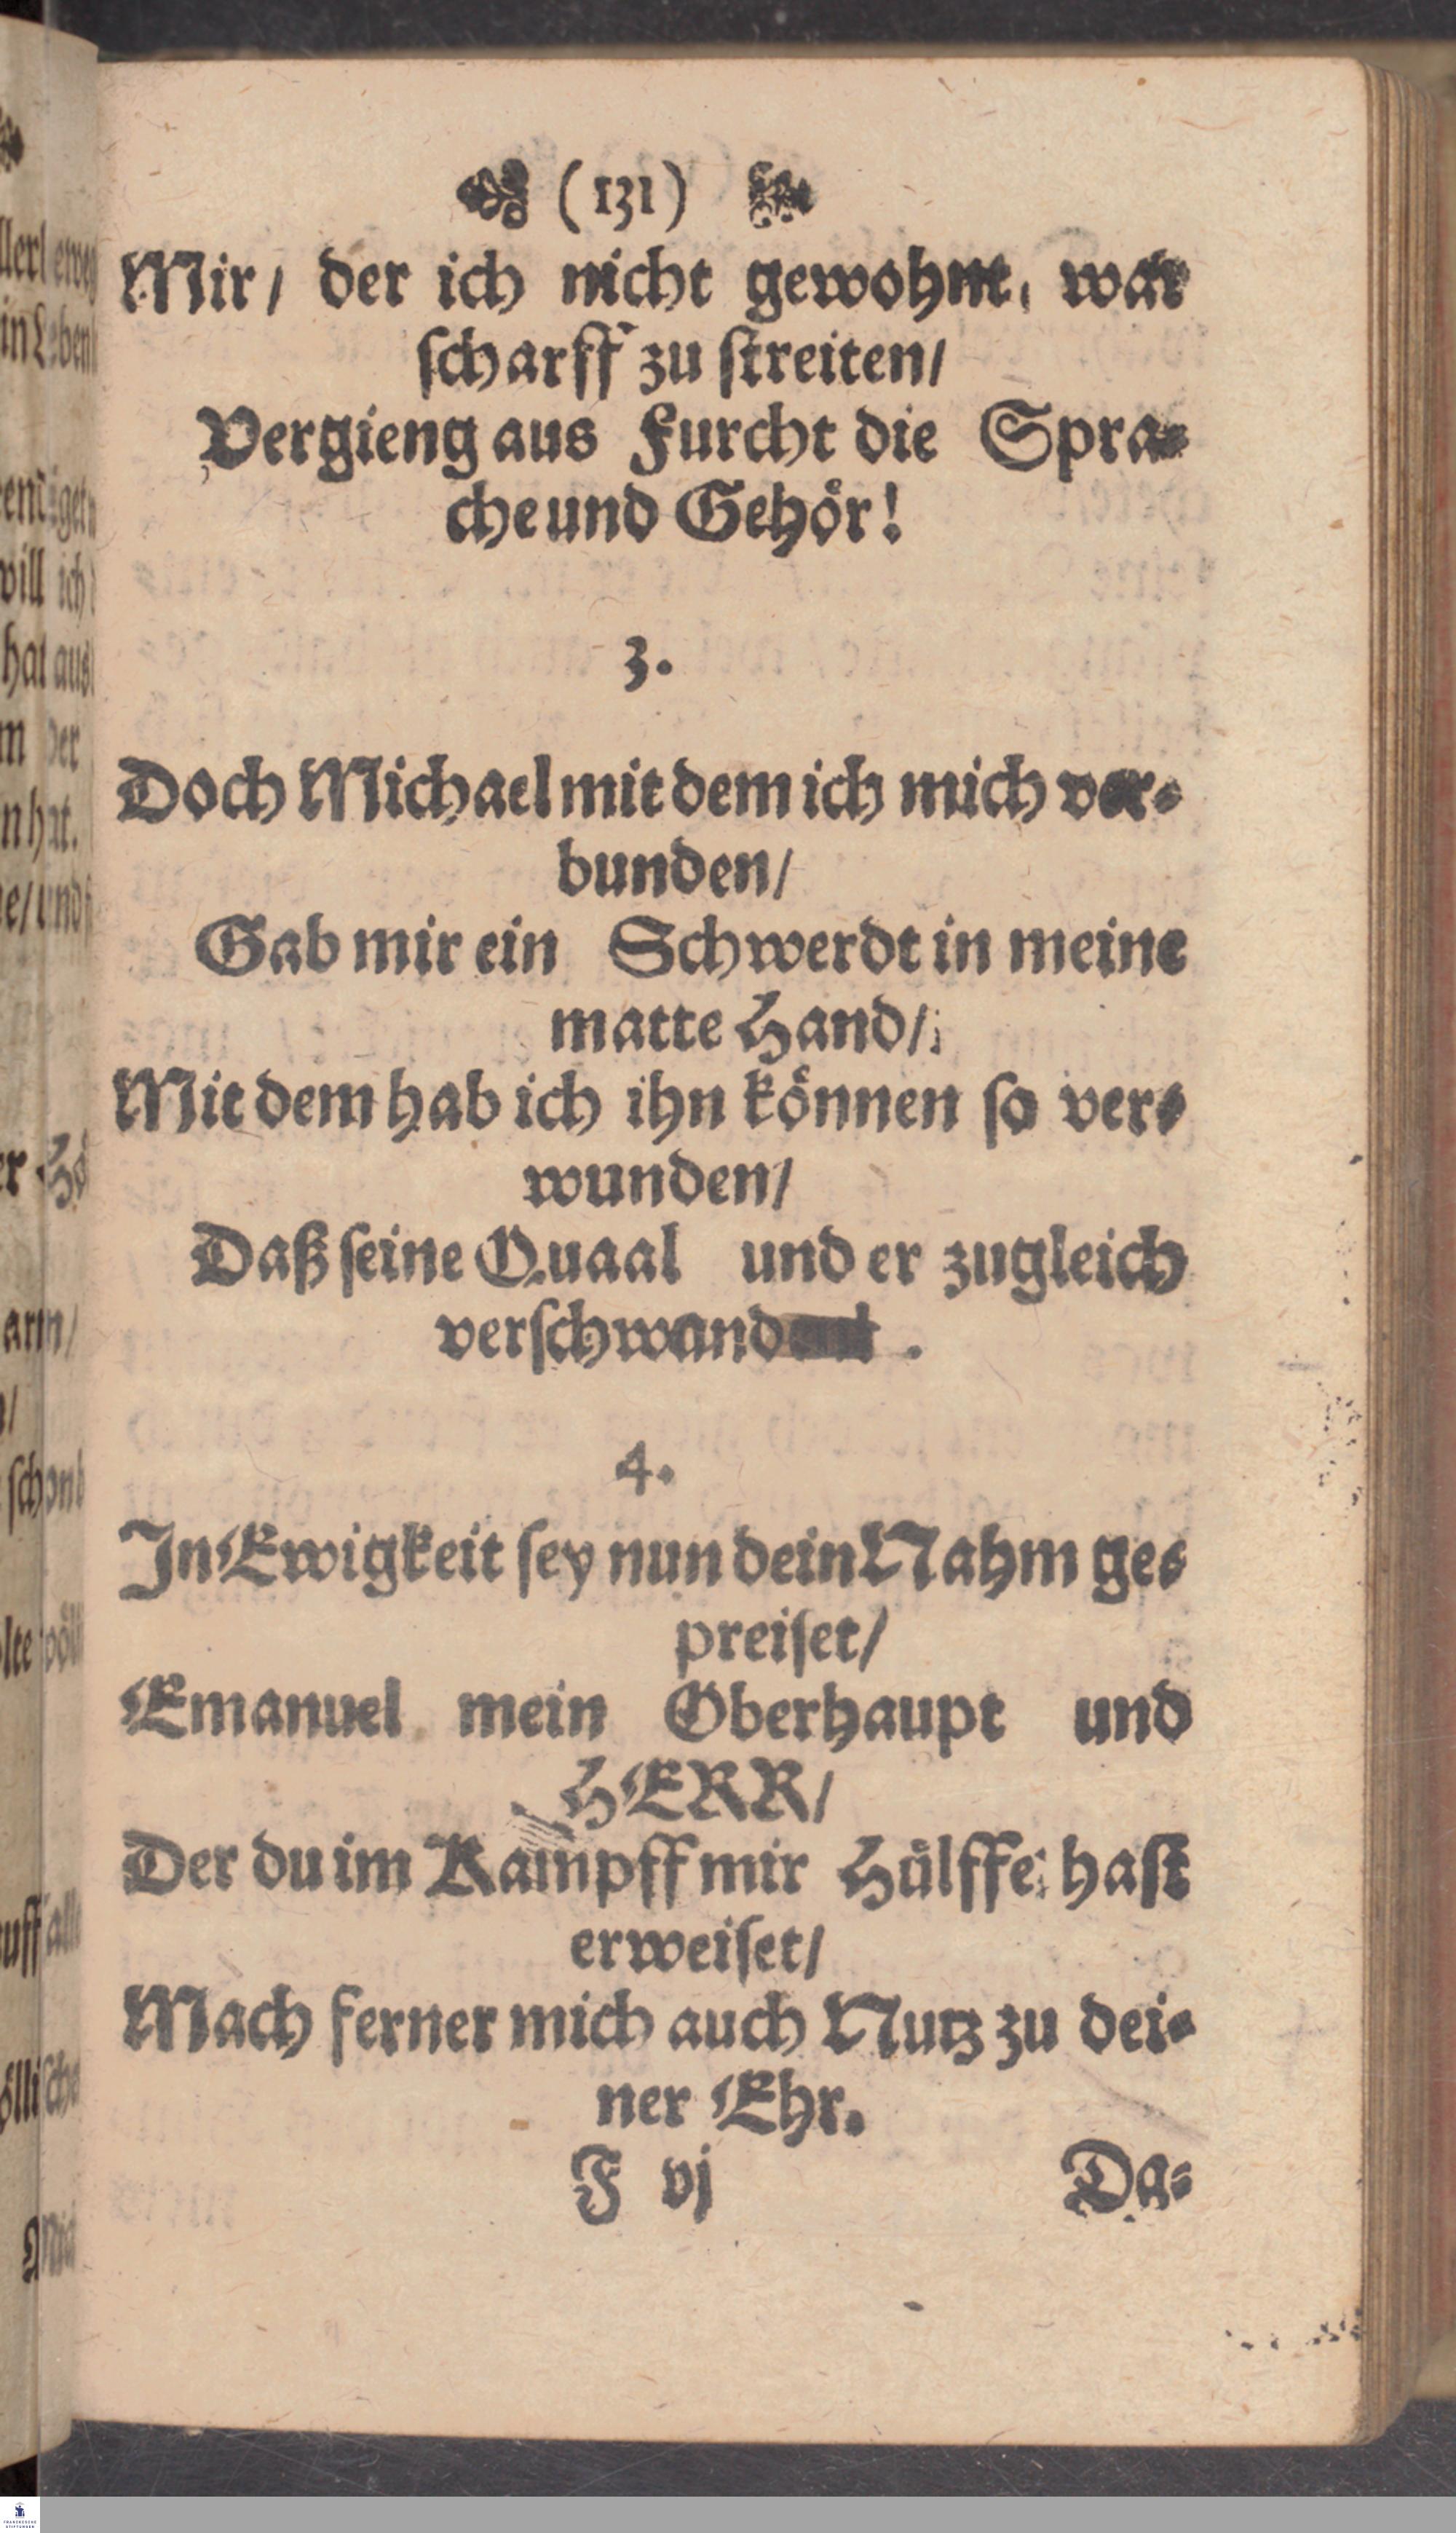 (131)
Mir/ der ich nicht gewohnt, war
ſcharff zu ſtreiten/
Vergieng aus Furcht die Spra-
che und Gehör!
3.
Doch Michael mit dem ich mich ver-
bunden/
Gab mir ein Schwerdt in meine
matte Hand/
Mit dem hab ich ihn können ſo ver-
wunden/
Daß ſeine Quaal und er zugleich
verſchwand.
4.
In Ewigkeit ſey nun dein Nahm ge-
preiſet/
Emanuel mein Oberhaupt und
HERR/
Der du im Kampff mir Hülffe haſt
erweiſet/
Mach ferner mich auch Nutz zu dei-
ner Ehr.
F vj Da-